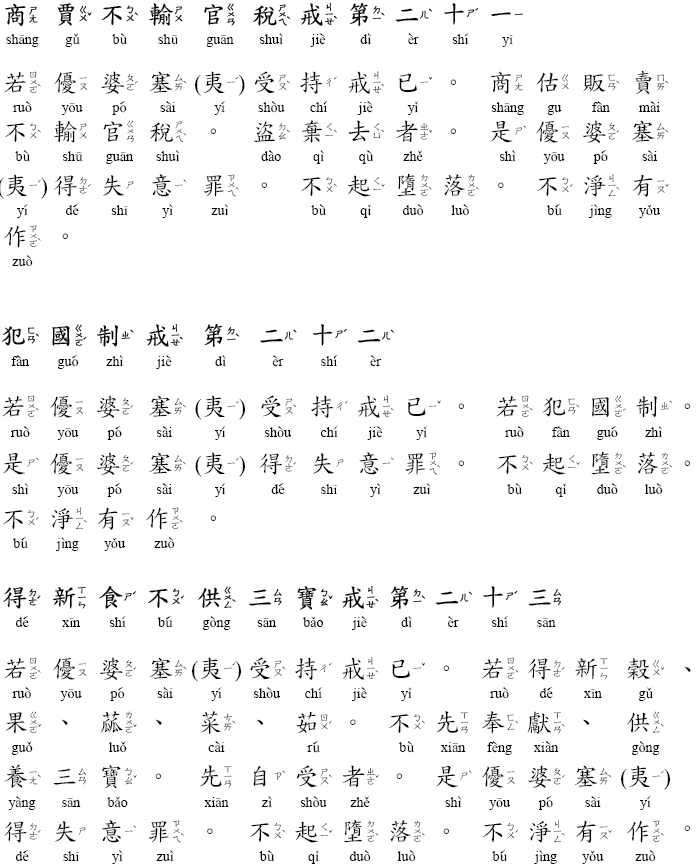 商賈不輸官稅戒第二十一
shāng gǔ bù shū guān shuì jiè dì èr shí yī
若優婆塞(夷)受持戒已。商估販賣
ruò yōu pó sài yí shòu chí jiè yǐ shāng gu fàn mài
不輸官稅。盜棄去者。是優婆塞
bù shū guān shuì dào qì qù zhě shì yōu pó sài
(夷)得失意罪。不起墮落。不淨有
yí dé shī yì zuì bù qǐ duò luò bú jìng yǒu
作。
zuò
犯國制戒第二十二
fàn guó zhì jiè dì èr shí èr
若優婆塞(夷)受持戒已。若犯國制。
ruò yōu pó sài yí shòu chí jiè yǐ ruò fàn guó zhì
是優婆塞(夷)得失意罪。不起墮落。
shì yōu pó sài yí dé shī yì zuì bù qǐ duò luò
不淨有作。
bú jìng yǒu zuò
得新食不供三寶戒第二十三
dé xīn shí bú gòng sān bǎo jiè dì èr shí sān
若優婆塞(夷)受持戒已。若得新穀、
ruò yōu pó sài yí shòu chí jiè yǐ ruò dé xīn gǔ
果、蓏、菜、茹。不先奉獻、供
guǒ luǒ cài rú bù xiān fèng xiàn gòng
養三寶。先自受者。是優婆塞(夷)
yàng sān bǎo xiān zì shòu zhě shì yōu pó sài yí
得失意罪。不起墮落。不淨有作。
dé shī yì zuì bù qǐ duò luò bú jìng yǒu zuò